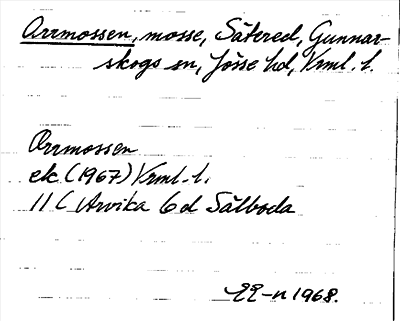 Arrmossen, mosse, Sätered, Gunnar-
skogs sn, Jösse hd, Vrml. l.
Arrmossen
ek (1967) Vrml. l.
11 C Arvika 6 d Sälboda
1968.